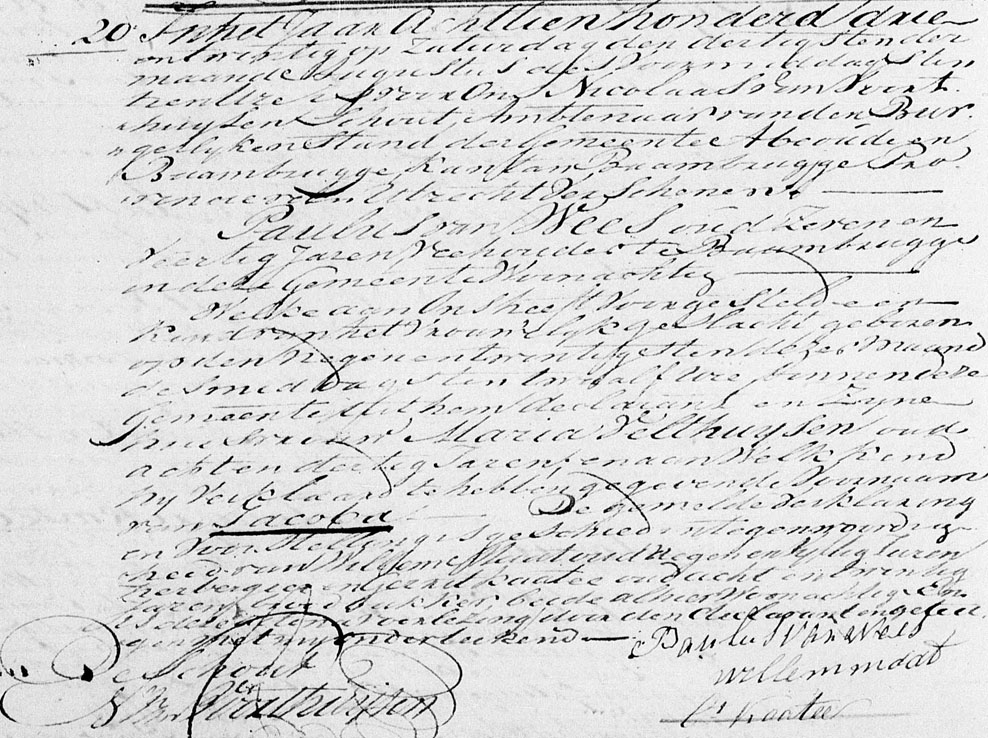 20 In het Jaar Achttien honderd drie
en twintig op Zaturdag den dertigsten der
maand Augustus des Voormiddags ten
tien Ure is voor Ons Nicolaas van Voort
huysen Schout, Ambtenaar van den Bur
gerlyken Stand der Gemeente Abcoude en
Baambrugge Kanton Baambrugge Pro
vincie van Utrecht Verschenen
Paulus van Wees oud Zeven en
Veertig Jaren Veehouder te Baambrugge
in deze Gemeente Woonachtig
Welke aan Ons heeft Voorgesteld een
Kind van het Vrouwelyk geslacht geboren
op den Negen en twintigsten dezer Maand
des middags ten twaalf Ure binnen deze
Gemeente Uit hem declarant en Zyne
huisvrouw Maria Velthuysen oud
acht en dertig Jaren, en aan Welk Kind
hy Verklaard te hebben gegeven de Voornaam
van Jacoba De gemelde Verklaring
en Voorstelling is geschied in tegenwoordig
heid van Willem Maat oud Negen en Jaren
herbergier en Kaatee oud acht en twintig
Jaren beide alhier Woonachtig En
is deze na Voorlezing door den declarant en getui
gen met my onderteekend
Paulus Van Wees
De Schout
willem maat
N Van Voorthuijsen
Kaatee